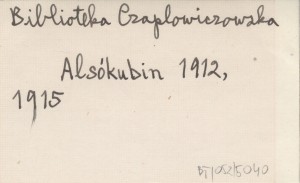 Biblioteka Czaplowiczowska
Alsókubin 1912,
1915
BJ/052/5040